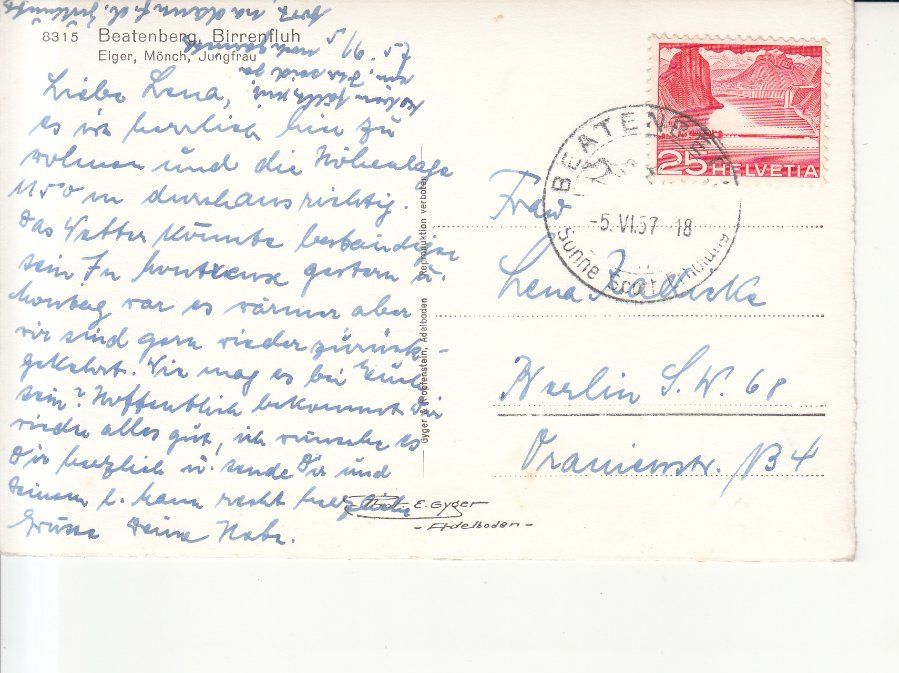 8315 Beatenberg, Birrenfluh
Eiger, Mönch, Jungfrau
Liebe Lena,
es ist herrlich hier zu
wohnen und die Höhenlage
1150 m durchaus richtig.
Das Wetter könnte beständiger
sein In Montreux gestern u.
Montag war es wärmer aber
wir sind gern wieder zurück-
gekehrt. Wie mag es bei Euch
sein? Hoffentlich bekommt Dir
wieder alles gut, ich wünsche es
Dir herzlich u. sende Dir und
Deinem l. Mann recht herzliche
Grüsse Deine
Gyger & Klopfenstein, Adelboden
Reproduktion verboten
Phot. E. Gyger
- Adelboden -
HELVETIA
25
BEATENBERG
-5.VI.57-18
Sonne Sport Erholung
Frau
Lena
Berlin S.W. 68
Oranienstr.